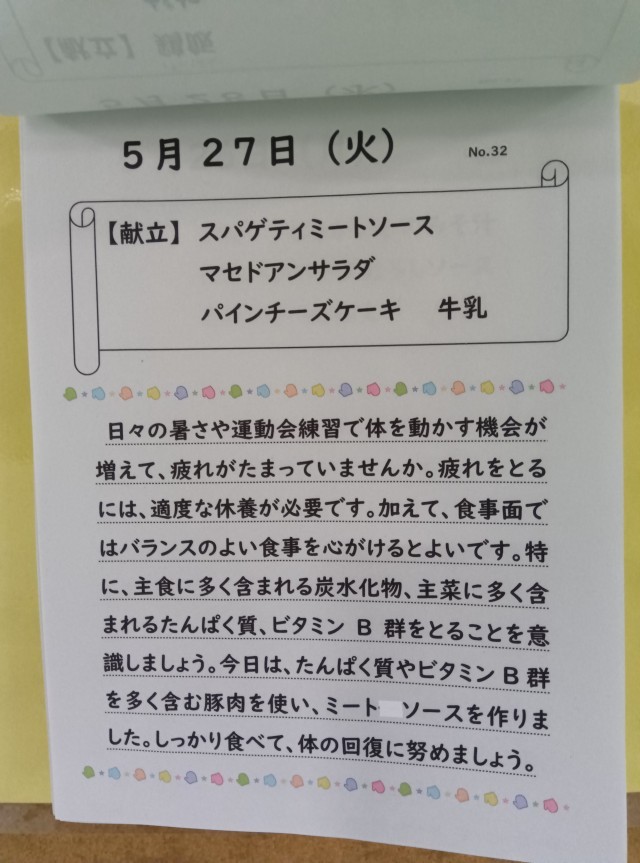 5月27日（火） No.32
【献立】 スパゲティミートソース
マセドアンサラダ
パインチーズケーキ 牛乳
日々の暑さや運動会練習で体を動かす機会が
増えて、疲れがたまっていませんか。疲れをとる
には、適度な休養が必要です。加えて、食事面で
はバランスのよい食事を心がけるとよいです。特
に、主食に多く含まれる炭水化物、主菜に多く含
まれるたんぱく質、ビタミン B 群をとることを意
識しましょう。今日は、たんぱく質やビタミンB群
を多く含む豚肉を使い、ミート ソースを作りま
した。しっかり食べて、体の回復に努めましょう。